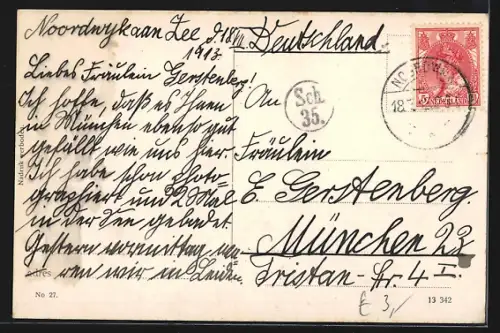 Noordwijk aan Zee d. 18/VII
1913.
Deutschland.
Liebes Fräulein Gerstenberg!
Ich hoffe, daß es Ihnen
in München ebenso gut
gefällt wie uns hier.
Ich habe schon photo-
graphiert und 2 Mal
in der See gebadet.
Gestern vormittag wa-
ren wir in Leiden.
An
Fräulein
E. Gerstenberg.
München 22
Tristan-Str. 4 I.
Sch.
35.
Nadruk verboden
No 27.
13 342
£ 3,-